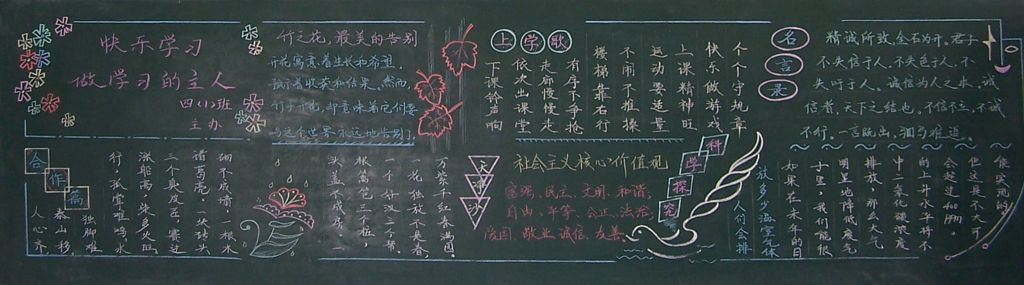 快乐学习
做学习的主人
四(1)班
主办
竹之花,最美的告别
开花寓意着生长和希望,
预示着收获和结果。然而,
竹子开花,却意味着它们要
与这个世界永远地告别了。
上学歌
个个守规章
快乐做游戏
上课精神旺
运动要适量
不闹不推操
楼梯靠右行
有序下争抢
走廊慢慢走
依次出课堂
下课铃声响
名言录
精诚所致,金石为开。君子
不失信于人,不失色于人,不
失口于人。诚信为人之本,诚
信者,天下之结也。不信不立,不诚
不行。一言既出,驷马难追。
合作篇
人心齐,
泰山移。
独脚难
行,孤掌难鸣。
水涨船高,柴多火旺。
三个臭皮匠,赛过
诸葛亮。一块砖头
砌不成墙,一根木
头盖不成房。
一个篱笆三个桩,
一个好汉三个帮。
一花独放不是春,
万紫千红春满园。
社会主义核心价值观
富强、民主、文明、和谐;
自由、平等、公正、法治;
爱国、敬业、诚信、友善。
科学探究
放多少温室气体
人们会排
如果在未年的日
子里,我们能很
明显地降低废气
排放,那么大气
中二氧化碳浓度
的上升水平将不
会超过400ppm,
但这是不大可
能实现的。